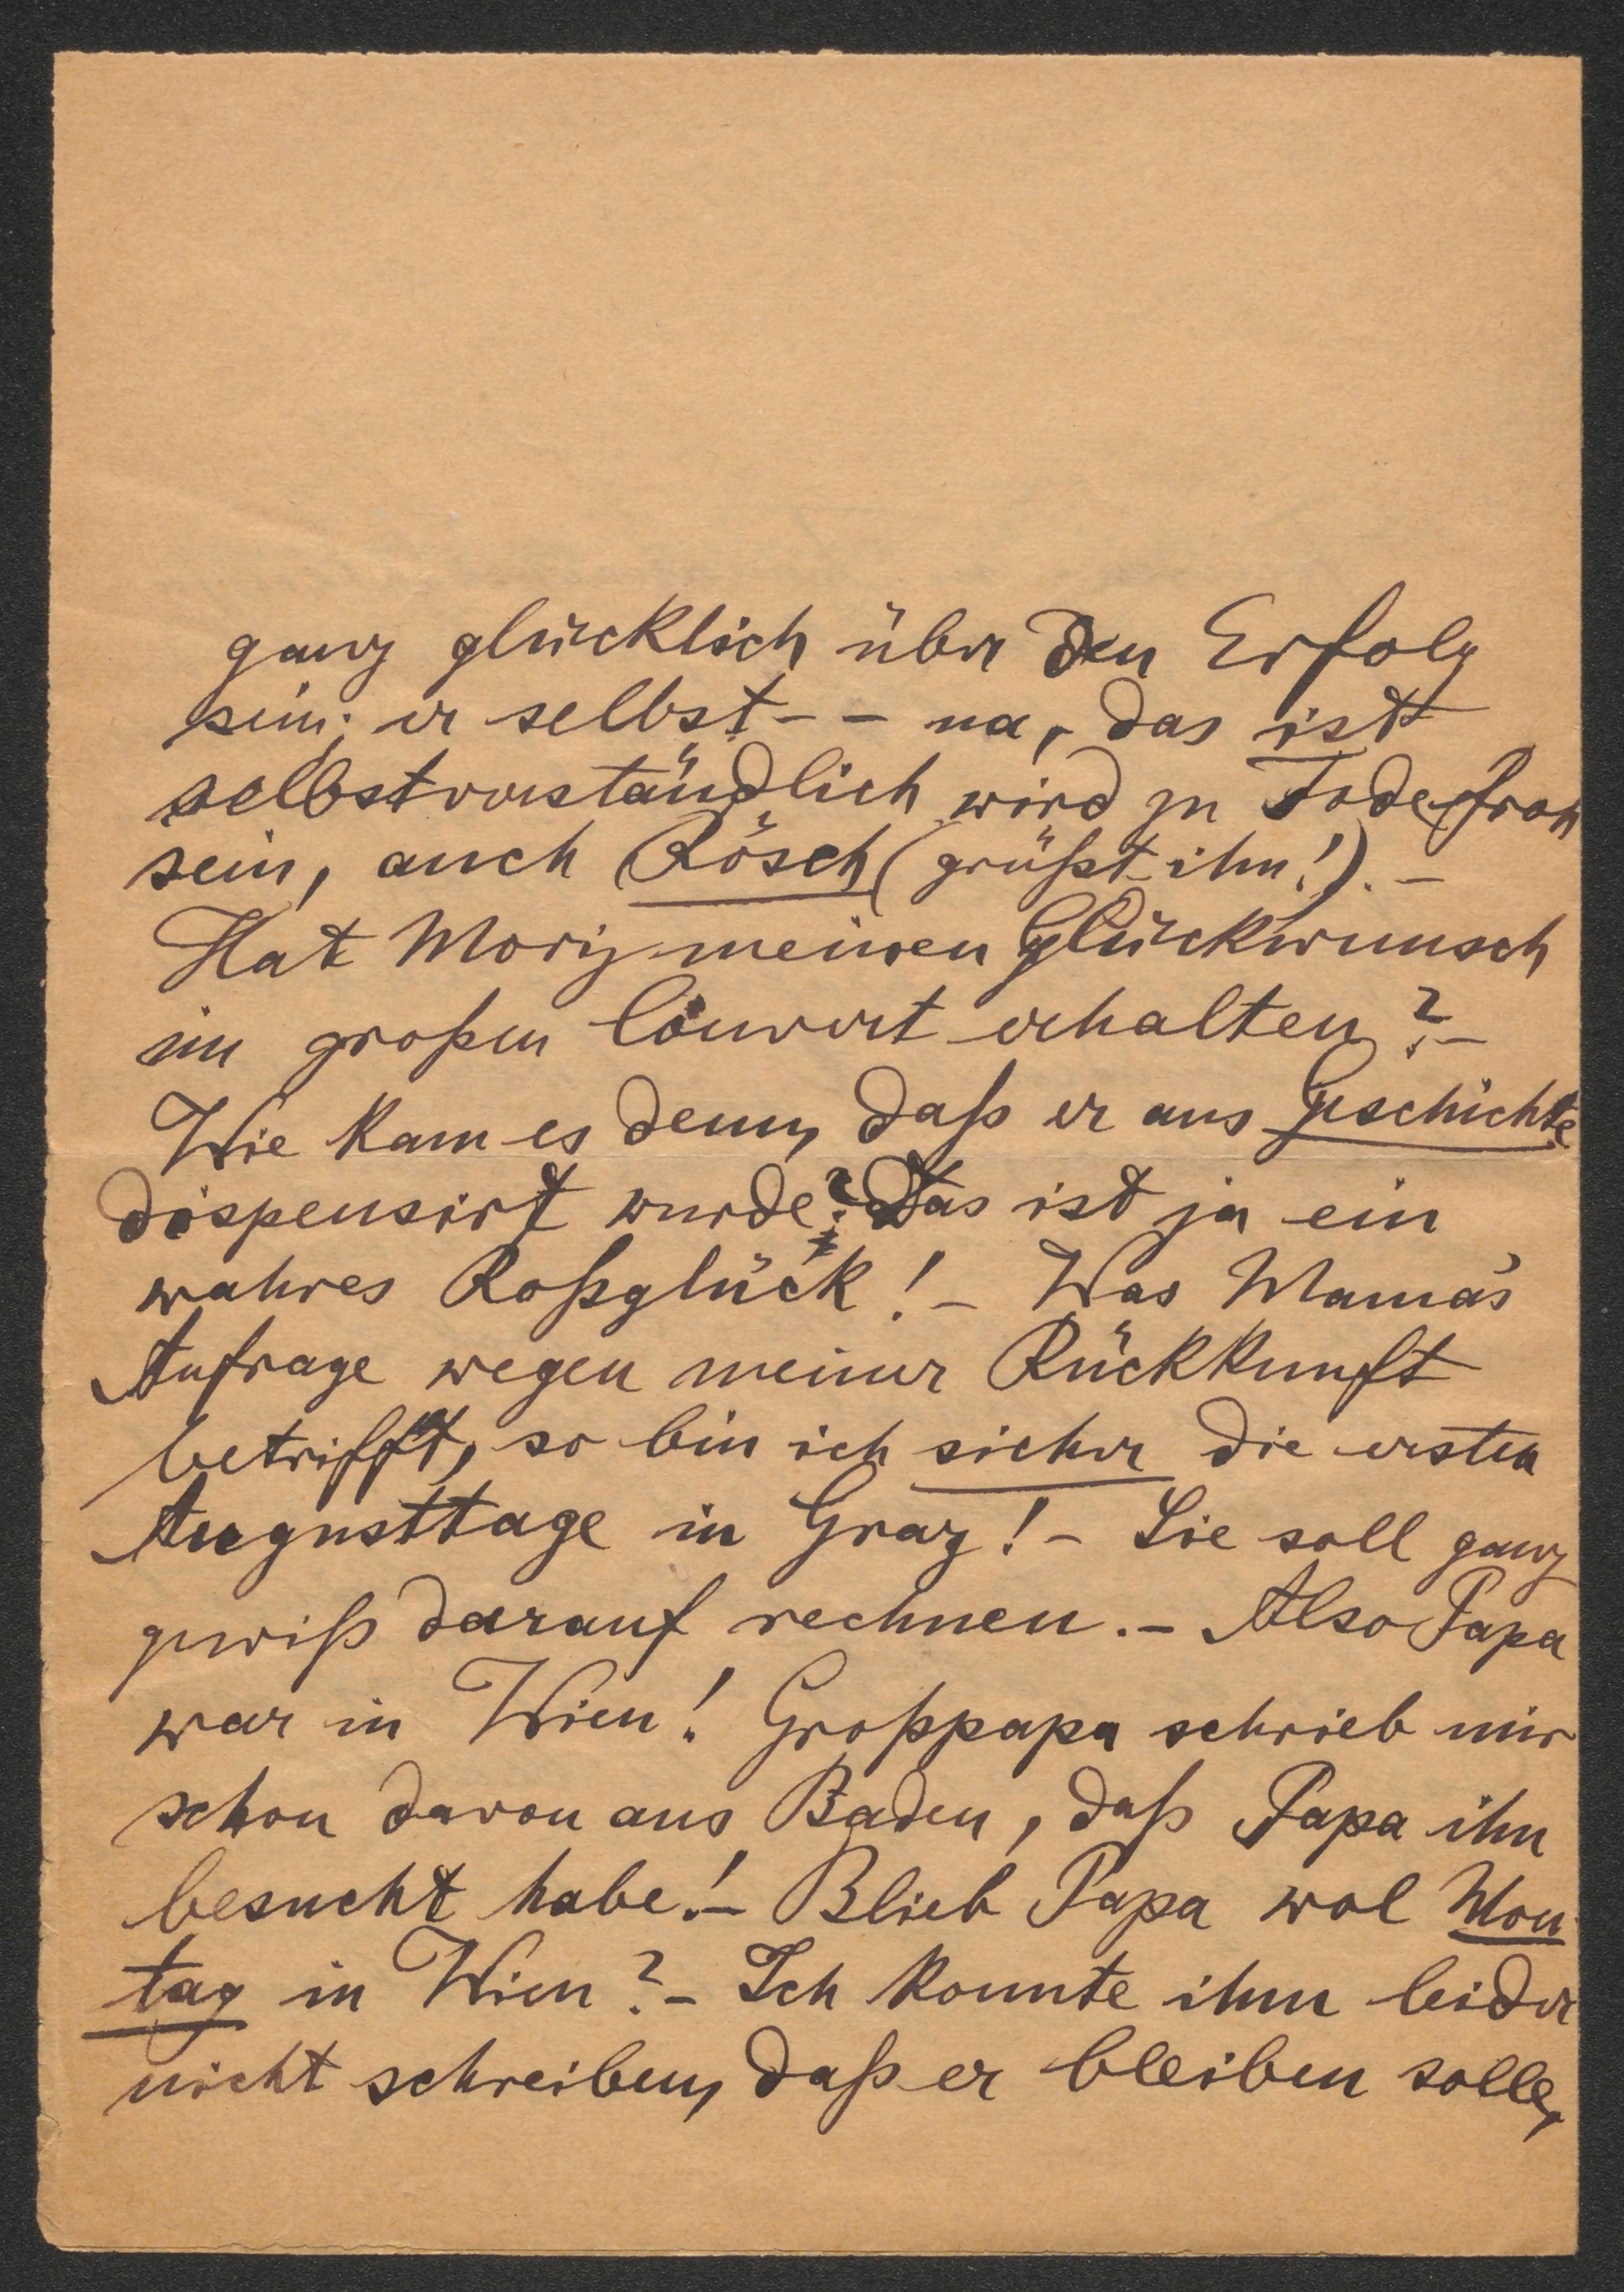 ganz glücklich über den Erfolg
sein; er selbst - - na, das ist
selbstverständlich wird zu Tode froh
sein, auch Rösch (grüßt ihn!). -
Hat Moriz meinen Glückwunsch
im großen Couvert erhalten? -
Wie kam es denn, daß er aus Geschichte
dispensirt wurde? Das ist ja ein
wahres Roßglück! - Was Mama's
Anfrage wegen meiner Rückkunft
betrifft, so bin ich sicher die ersten
Augusttage in Graz! - Sie soll ganz
gewiß darauf rechnen. - Also Papa
war in Wien! Großpapa schrieb mir
schon davon aus Baden, daß Papa ihn
besucht habe! - Blieb Papa wol Mon
tag in Wien? - Ich konnte ihm leider
nicht schreiben, daß er bleiben solle,